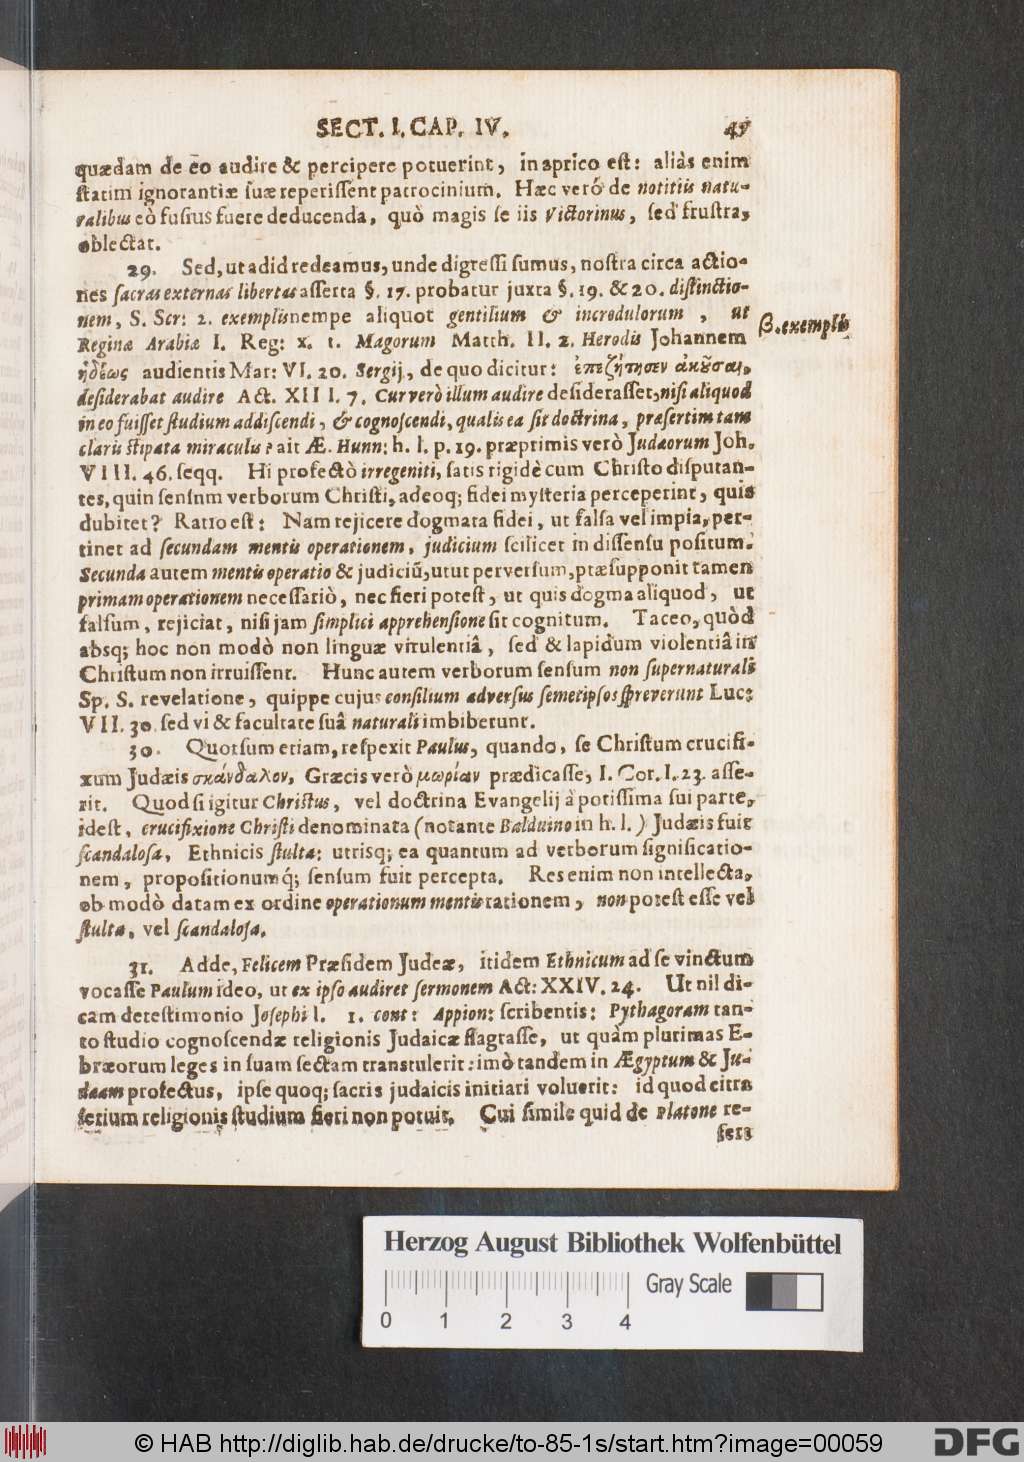 SECT. I. CAP. IV. 47
quædam de eo audire & percipere potuerint, in aprico est: aliàs enim
statim ignorantiæ suæ reperissent patrocinium. Hæc verò de notitiis natu-
ralibus eò fusius fuere deducenda, quò magis se iis Victorinus, sed frustra,
oblectat.
29. Sed, ut ad id redeamus, unde digressi sumus, nostra circa actio-
nes sacras externas libertas asserta §. 17. probatur juxta §. 19. & 20. distinctio-
nem, S. Scr: 2. exemplis nempe aliquot gentilium & incredulorum, ut
β. exemplis
Reginæ Arabiæ I. Reg: x. 1. Magorum Matth. II. 2. Herodis Johannem
ἡδέως audientis Mar: VI. 20. Sergij, de quo dicitur: ἐπεζήτησεν ἀκȣ̃σαι,
desiderabat audire Act. XIII. 7. Cur verò illum audire desiderasset, nisi aliquod
in eo fuisset studium addiscendi, & cognoscendi, qualis ea sit doctrina, præsertim tam
claris stipata miraculis? ait Æ. Hunn: h. l. p. 19. præprimis verò Judæorum Joh.
VIII. 46. seqq. Hi profectò irregeniti, satis rigidè cum Christo disputan-
tes, quin sensum verborum Christi, adeoq; fidei mysteria perceperint, quis
dubitet? Ratio est: Nam rejicere dogmata fidei, ut falsa vel impia, per-
tinet ad secundam mentis operationem, judicium scilicet in dissensu positum.
Secunda autem mentis operatio & judiciũ, utut perversum, præsupponit tamen
primam operationem necessariò, nec fieri potest, ut quis dogma aliquod, ut
falsum, rejiciat, nisi jam simplici apprehensione sit cognitum. Taceo, quòd
absq; hoc non modò non linguæ virulentiâ, sed & lapidum violentiâ in
Christum non irruissent. Hunc autem verborum sensum non supernaturali
Sp. S. revelatione, quippe cujus consilium adversus semetipsos spreverunt Luc:
VII. 30. sed vi & facultate suâ naturali imbiberunt.
30. Quorsum etiam, respexit Paulus, quando, se Christum crucifi-
xum Judæis σκάνδαλον, Græcis verò μωρίαν prædicasse, I. Cor. I. 23. asse-
rit. Quod si igitur Christus, vel doctrina Evangelij à potissima sui parte,
idest, crucifixione Christi denominata (notante Balduino in h. l.) Judæis fuit
scandalosa, Ethnicis stulta: utrisq; ea quantum ad verborum significatio-
nem, propositionumq́; sensum fuit percepta. Res enim non intellecta,
ob modò datam ex ordine operationum mentis rationem, non potest esse vel
stulta, vel scandalosa.
31. Adde, Felicem Præsidem Judeæ, itidem Ethnicum ad se vinctum
vocasse Paulum ideo, ut ex ipso audiret sermonem Act: XXIV. 24. Ut nil di-
cam de testimonio Josephi l. 1. cont: Appion: scribentis: Pythagoram tan-
to studio cognoscendæ religionis Judaicæ flagrasse, ut quàm plurimas E-
bræorum leges in suam sectam transtulerit: imò tandem in Ægyptum & Ju-
dæam profectus, ipse quoq; sacris judaicis initiari voluerit: id quod citra
serium religionis studium fieri non potuit. Cui simile quid de Platone re-
fert
Herzog August Bibliothek Wolfenbüttel
Gray Scale
0 1 2 3 4
© HAB http://diglib.hab.de/drucke/to-85-1s/start.htm?image=00059
DFG